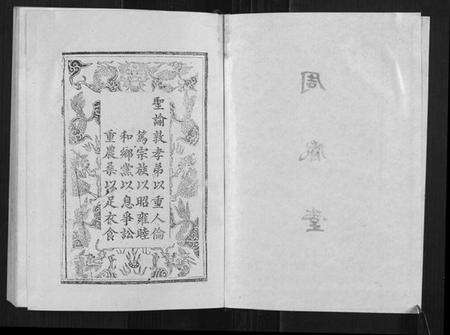 聖諭敦孝弟以重人倫
篤宗族以昭雍睦
和鄉黨以息爭訟
重農桑以足衣食
周堂